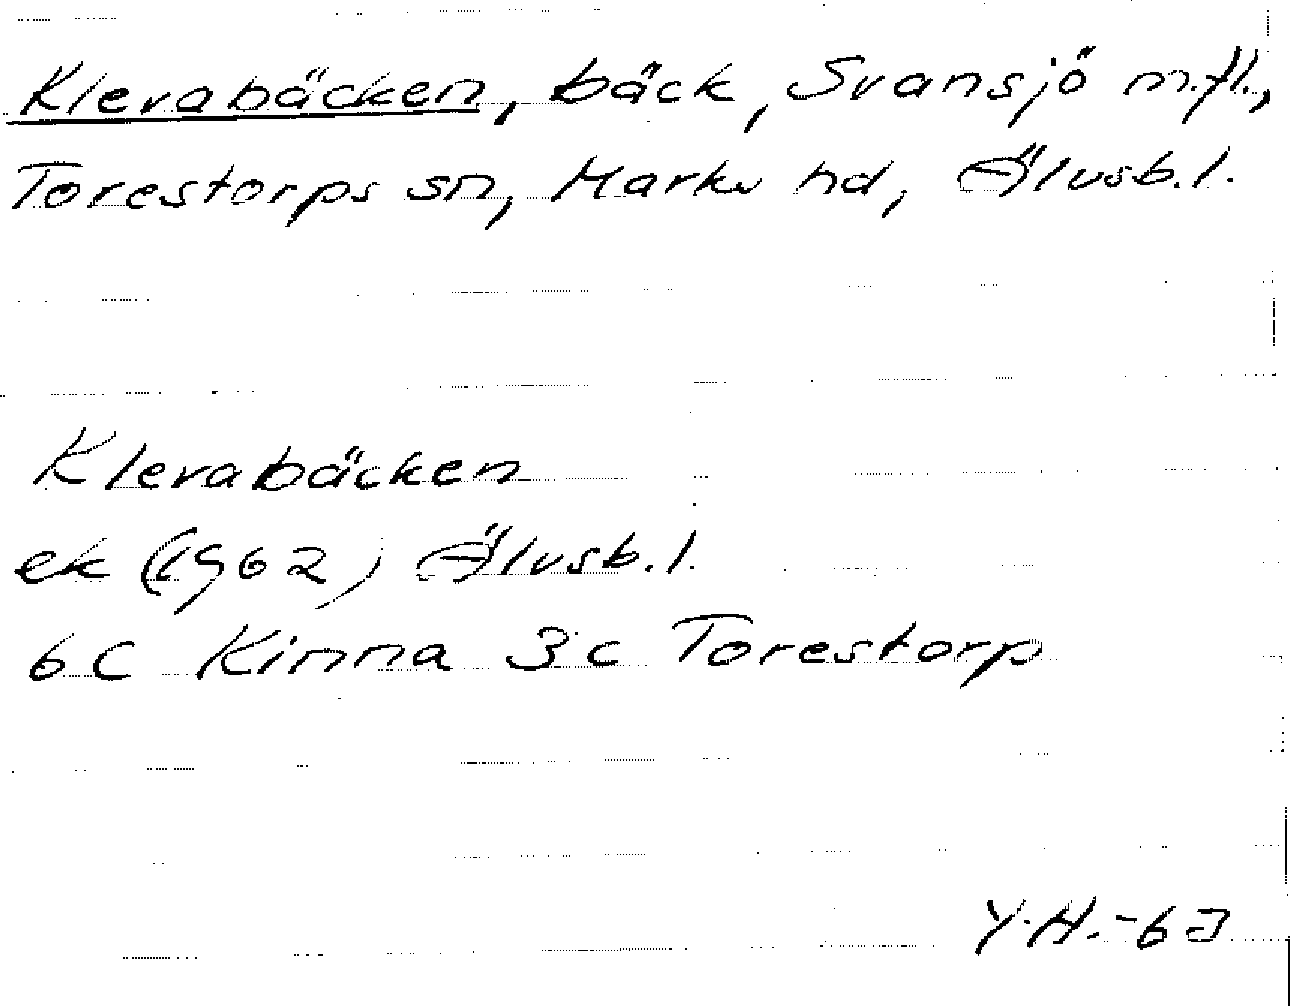 Klevabäcken, bäck, Svansjö m.fl.,
Torestorps sn, Marks hd, Älvsb.l.
Klevabäcken
ek (1962) Älvsb.l.
6C Kinna 3c Torestorp
Y.H.-63